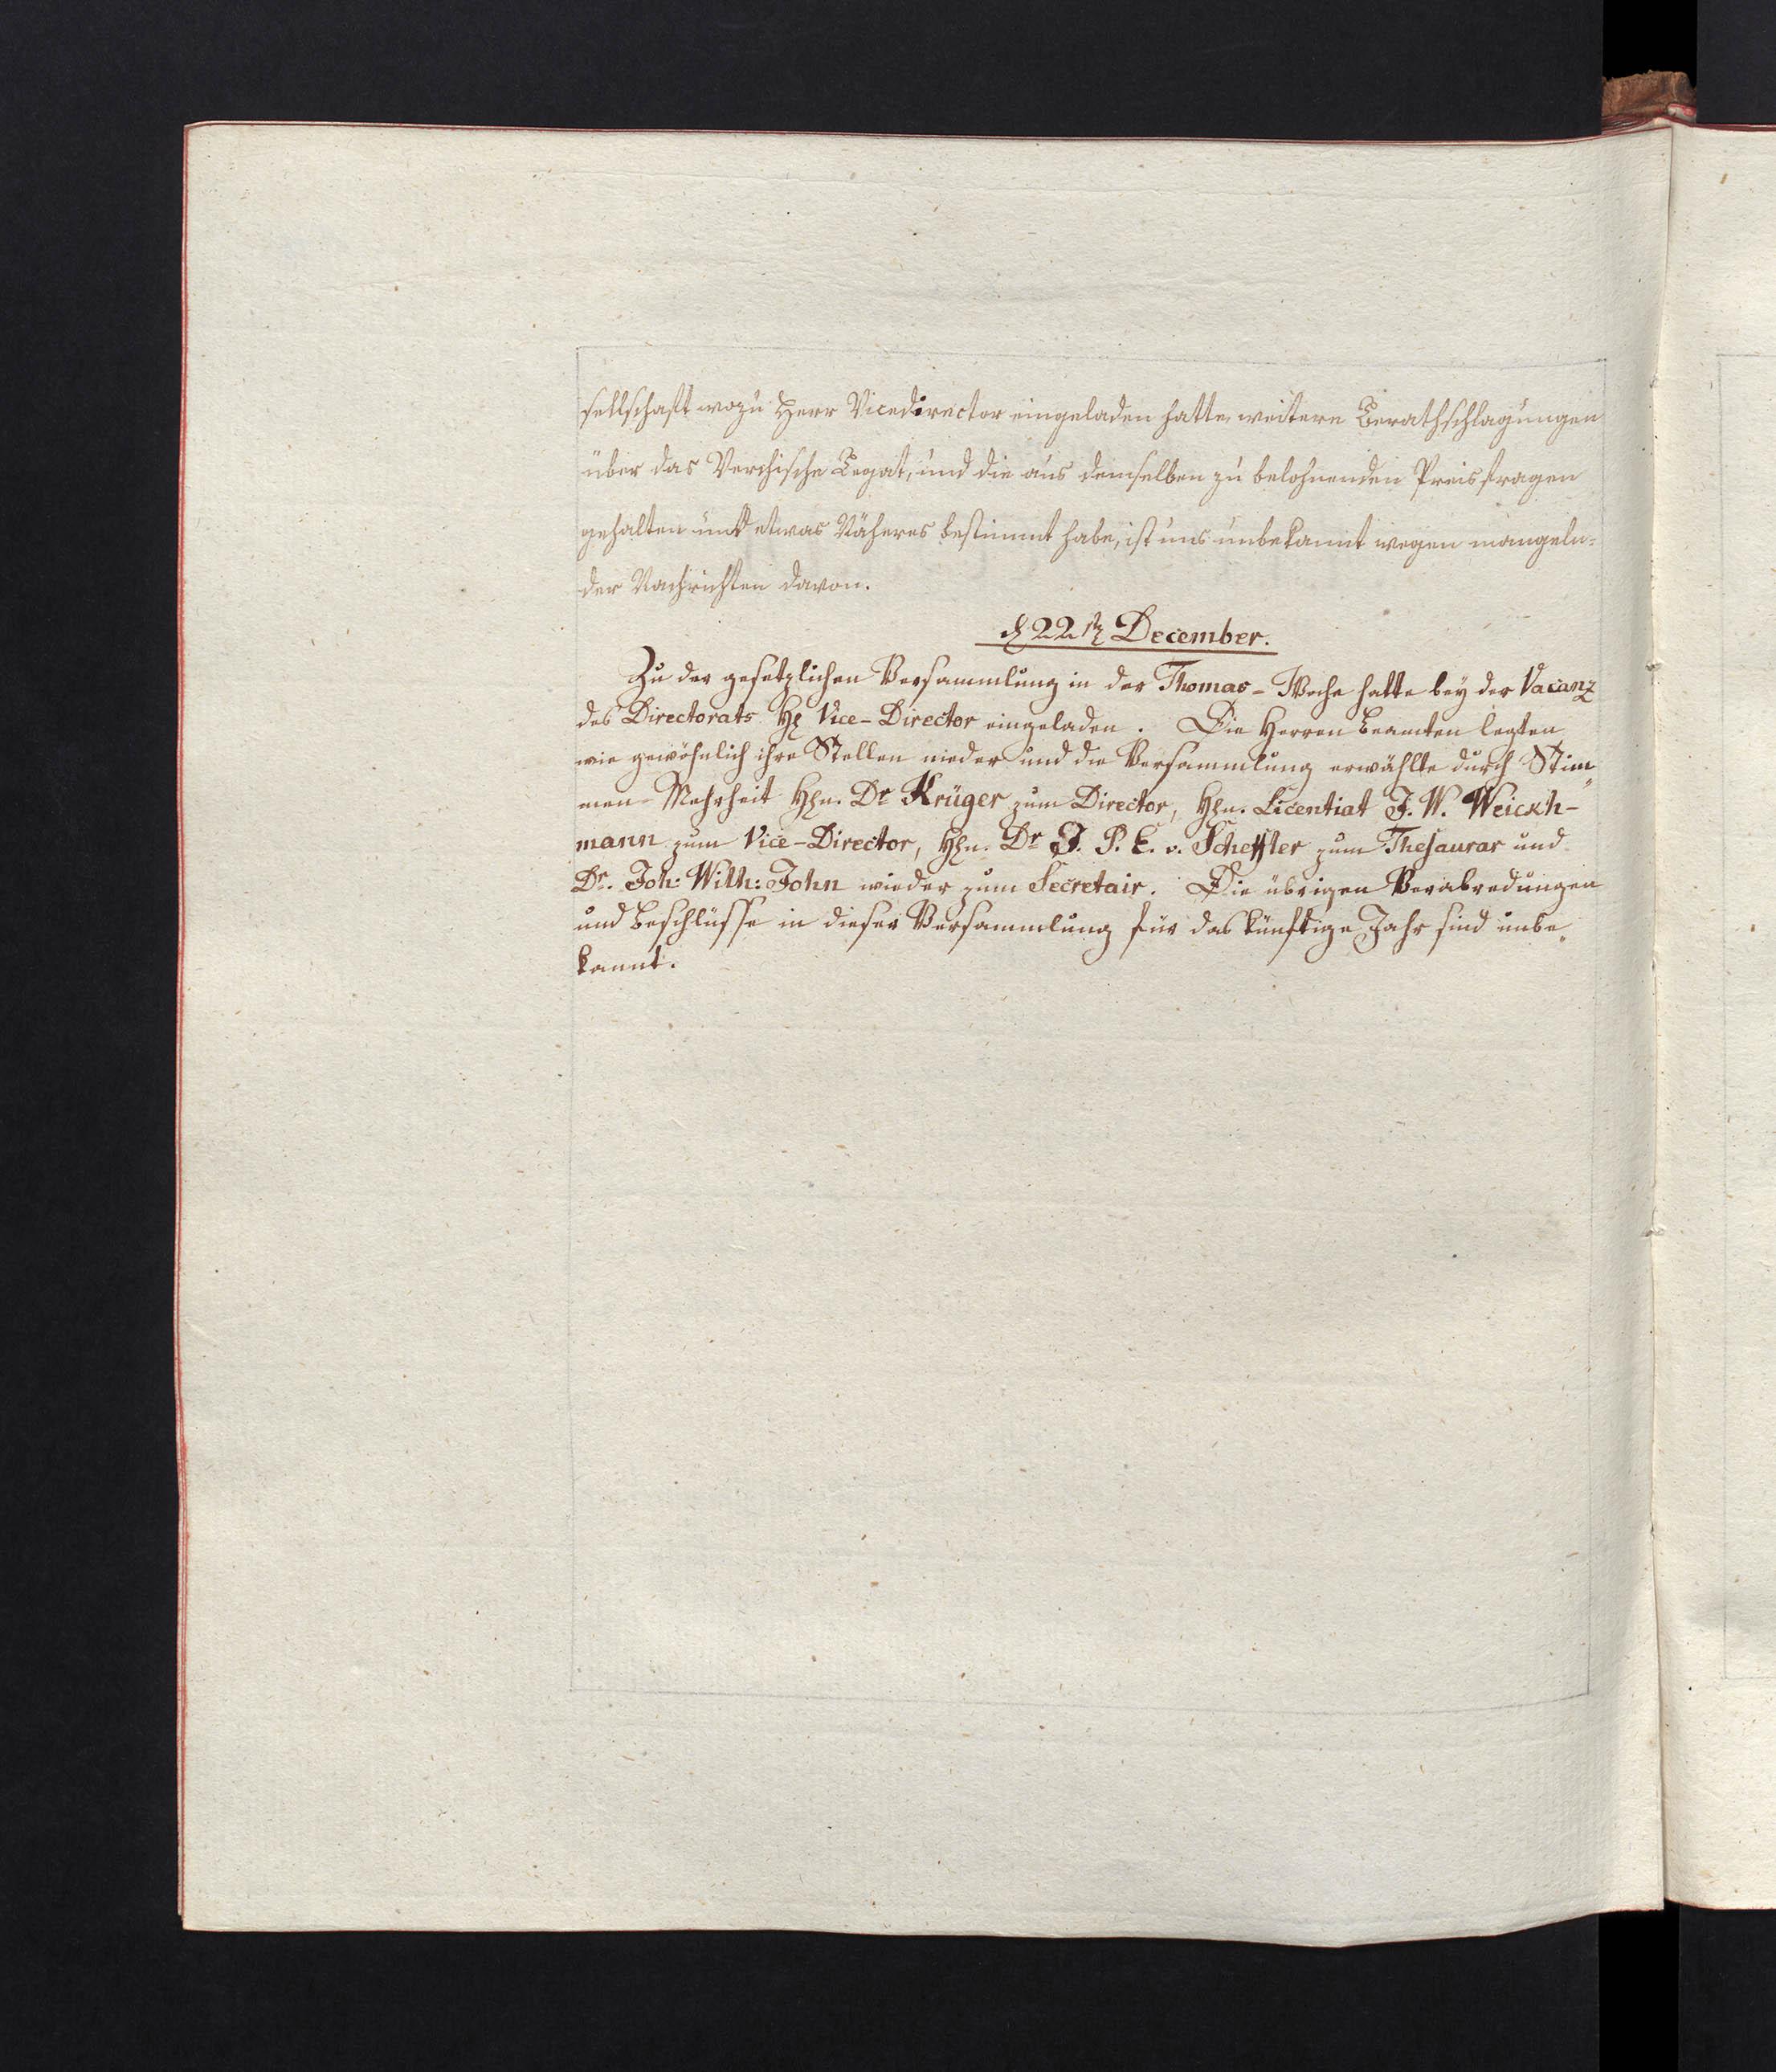 sellschaft wozu Herr Vicedirector eingeladen hatte, weitere Berathschlagungen
über das Verchische Legat, und die aus demselben zu belohnenden Preisfragen
gehalten und etwas Näheres bestimmt habe, ist uns unbekannt wegen mangeln=
der Nachrichten davon.
d 22st December.
Zu der gesetzlichen Versammlung in der Thomas-Woche hatte bey der Vacanz
des Directorats H. Vice-Director eingeladen. Die Herren Beamten legten
wie gewöhnlich ihre Stellen nieder und die Versammlung erwählte durch Stim„
men-Mehrheit Hn. Dr Krüger zum Director, Hn. Licentiat J. W. Weickh-
mann zum Vice-Director, Hn. Dr J. P. E. v. Scheffler zum Thesaurar und
Dr. Joh: Wilh: John wieder zum Secretair. Die übrigen Verabredungen
und Beschlüsse in dieser Versammlung für das künftige Jahr sind unbe„
kannt.